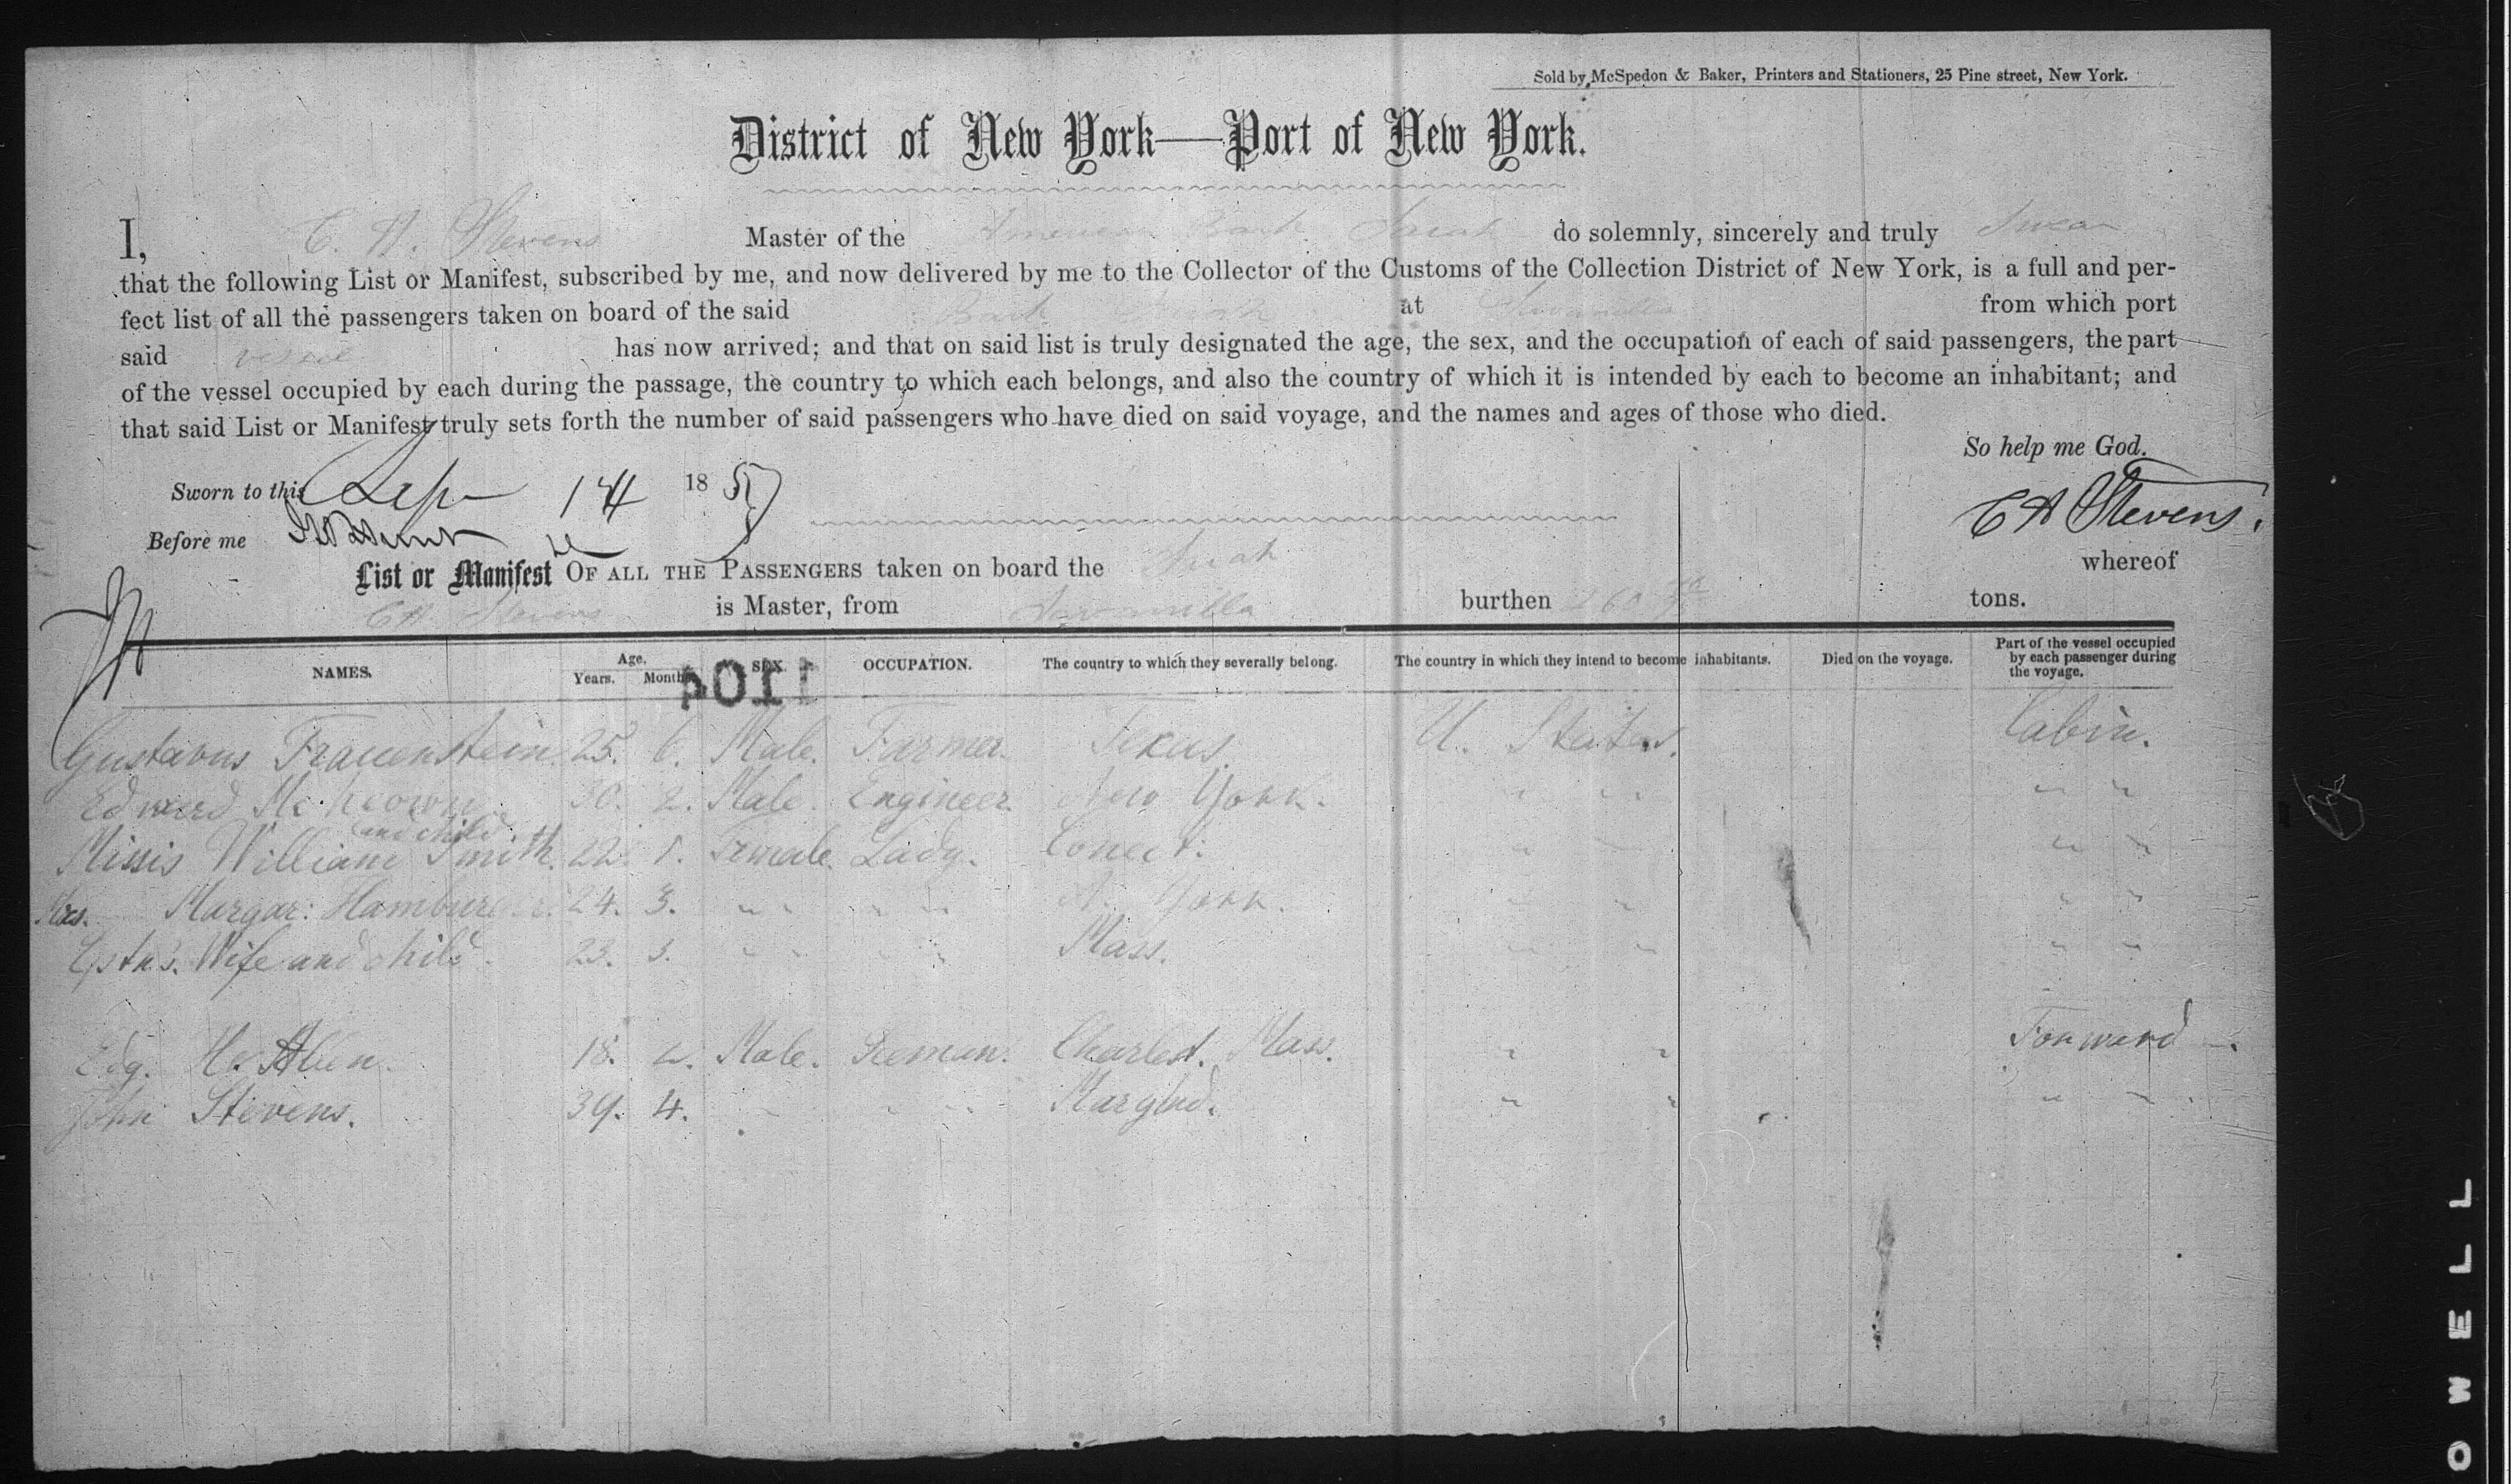 Sold by McSpedon & Baker, Printers and Stationers, 25 Pine street, New York.
District of New York—Port of New York.
I, C. A. Stevens Master of the American Bark Sarah do solemnly, sincerely and truly swear
that the following List or Manifest, subscribed by me, and now delivered by me to the Collector of the Customs of the Collection District of New York, is a full and per-
fect list of all the passengers taken on board of the said Bark at from which port
said vessel has now arrived; and that on said list is truly designated the age, the sex, and the occupation of each of said passengers, the part
of the vessel occupied by each during the passage, the country to which each belongs, and also the country of which it is intended by each to become an inhabitant; and
that said List or Manifest truly sets forth the number of said passengers who have died on said voyage, and the names and ages of those who died.
So help me God.
Sworn to this Sep 14 1857
C A Stevens.
Before me
List or Manifest OF ALL THE PASSENGERS taken on board the Sarah whereof
C A Stevens is Master, from burthen tons.
NAMES. Age. Years. Months SEX. OCCUPATION. The country to which they severally belong. The country in which they intend to become inhabitants. Died on the voyage. Part of the vessel occupied by each passenger during the voyage.
Gustavus Frauenstein 25. 6. Male. Farmer. Texus. U. States. Cabin.
Edward McKeown 30. 2. Male. Engineer. New York. " " " "
and child
Missis William Smith 22. 1. Female Lady. Conect. " " " "
Mrs. Margar: 24. 3. " " " " N. York. " " " "
Cptn's. Wife and child. 23. 3. " " " Mass. " " " "
Edg. H. Allen. 18. 2. Male. Seeman. Charlest. Mass. " " Forward
John Stevens. 39. 4. " " " Marylnd. " " " "
OWELL